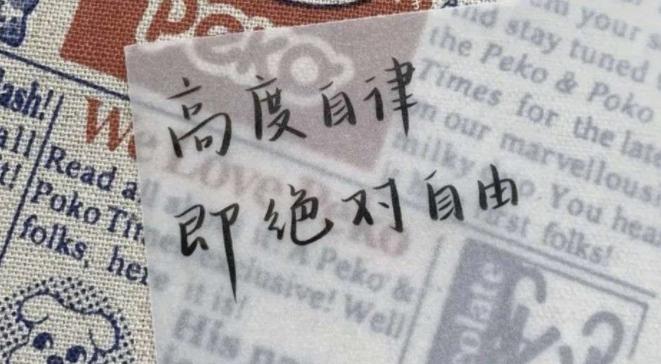 高度自律
即绝对自由
Peko
em your s
and stay tuned
the Peko & Poko
Times for the late
m our marvellous
milky
You hea
first folks!
lash!
all
it!
Read a
Poko Tim
folks, her
We Love Poko
Peko &
clusive! Well
it is!
His na
olate